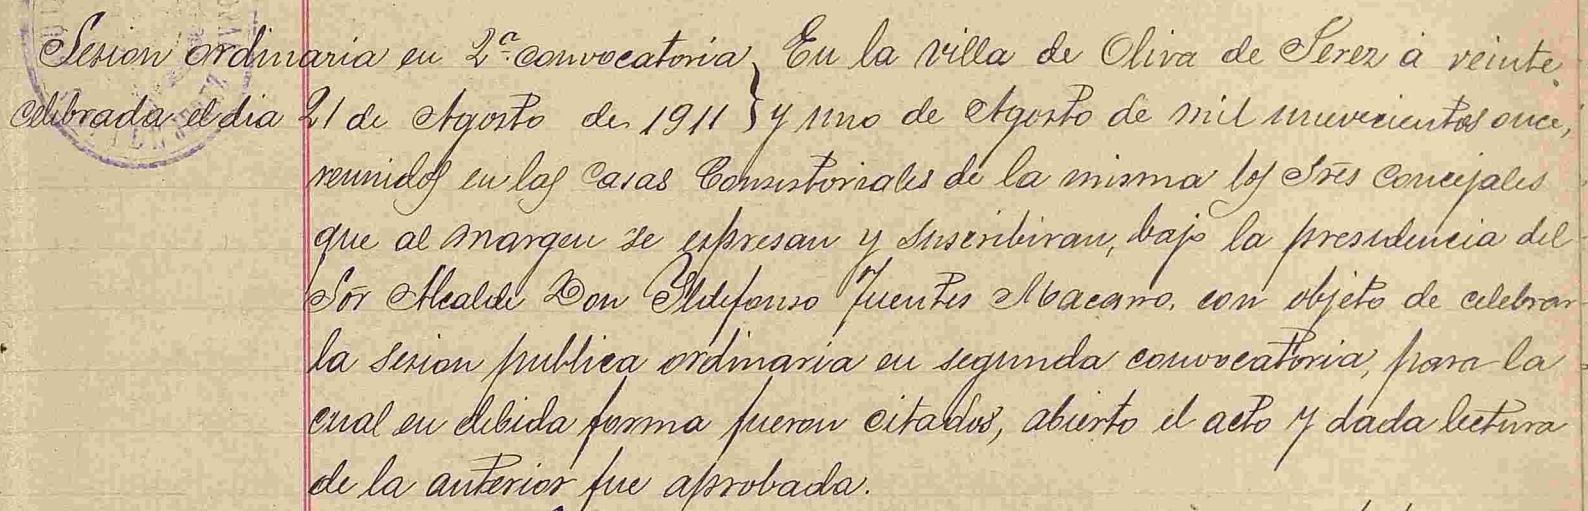 Sesion ordinaria en 2ª convocatoria } En la villa de Oliva de Jerez á veinte
celebrada el dia 21 de Agosto de 1911 } y uno de Agosto de mil nuevecientos once,
reunidos en las Casas Consistoriales de la misma los Sres Concejales
que al margen se espresan y suscribiran, bajo la presidencia del
Sor Alcalde Don Ildefonso Fuentes Macarro, con objeto de celebrar
la sesion publica ordinaria en segunda convocatoria, para la
cual en debida forma fueron citados, abierto el acto y dada lectura
de la anterior fue aprobada.